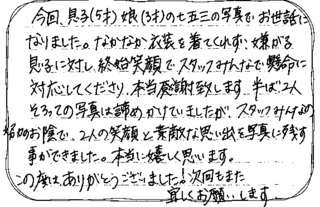 今回、息子(5才)娘(3才)の七五三の写真でお世話に
なりました。なかなか衣装を着てくれず、嫌がる
息子に対し、終始笑顔でスタッフみんなで懸命に
対応してくださり、本当感謝致します。半ば2人
そろっての写真は諦めかけていましたが、スタッフみんなの
お陰で、2人の笑顔と素敵な思い出を写真に残す
事ができました。本当に嬉しく思います。
この度はありがとうございました!次回もまた
宜しくお願いします。